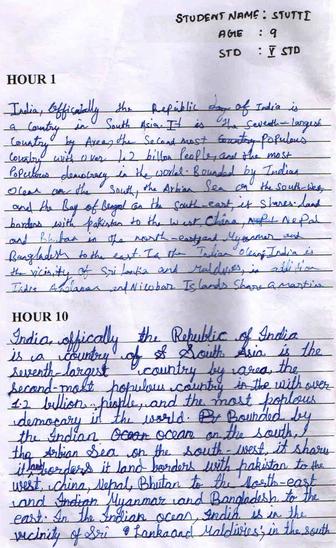 STUDENT NAME : STUTTI
AGE : 9
STD : V STD
HOUR 1
India, Officially the Republic day of India is
a country in South Asia. It is the seventh-largest
country by Area, the Second most Populous
Country with over 1.2 billon People, and the most
Populous democracy in the world. Bounded by Indian
Ocean on the South, the Arbian Sea on the South-West,
and the Bay of Bengal on the South-east, it Shares land
borders with pakistan to the west, China, Nepal
and Bhutan in the north-east and Myanmar and
Bangladesh to the east. In the Indian Ocean, India is
the vicinity of Sri Lanka and Maldives, in addition
Andaman and Nicobar Islands Share a maritim
HOUR 10
India, offically the Republic of India
is a country of South Asia is the
seventh-largest country by area, the
second-most populous country in the with over
1.2 billion people, and the most poplous
democary in the world. Bounded by
the Indian ocean on the south,
the Arbian Sea on the south-west, it share
land borders it land borders with pakistan to the
west, china, Nepal, Bhutan to the North-east
and Myanmar and Bangladesh to the
east. In the Indian ocean, India is in the
vecinity of Sri Lanka and Maldives; in the south